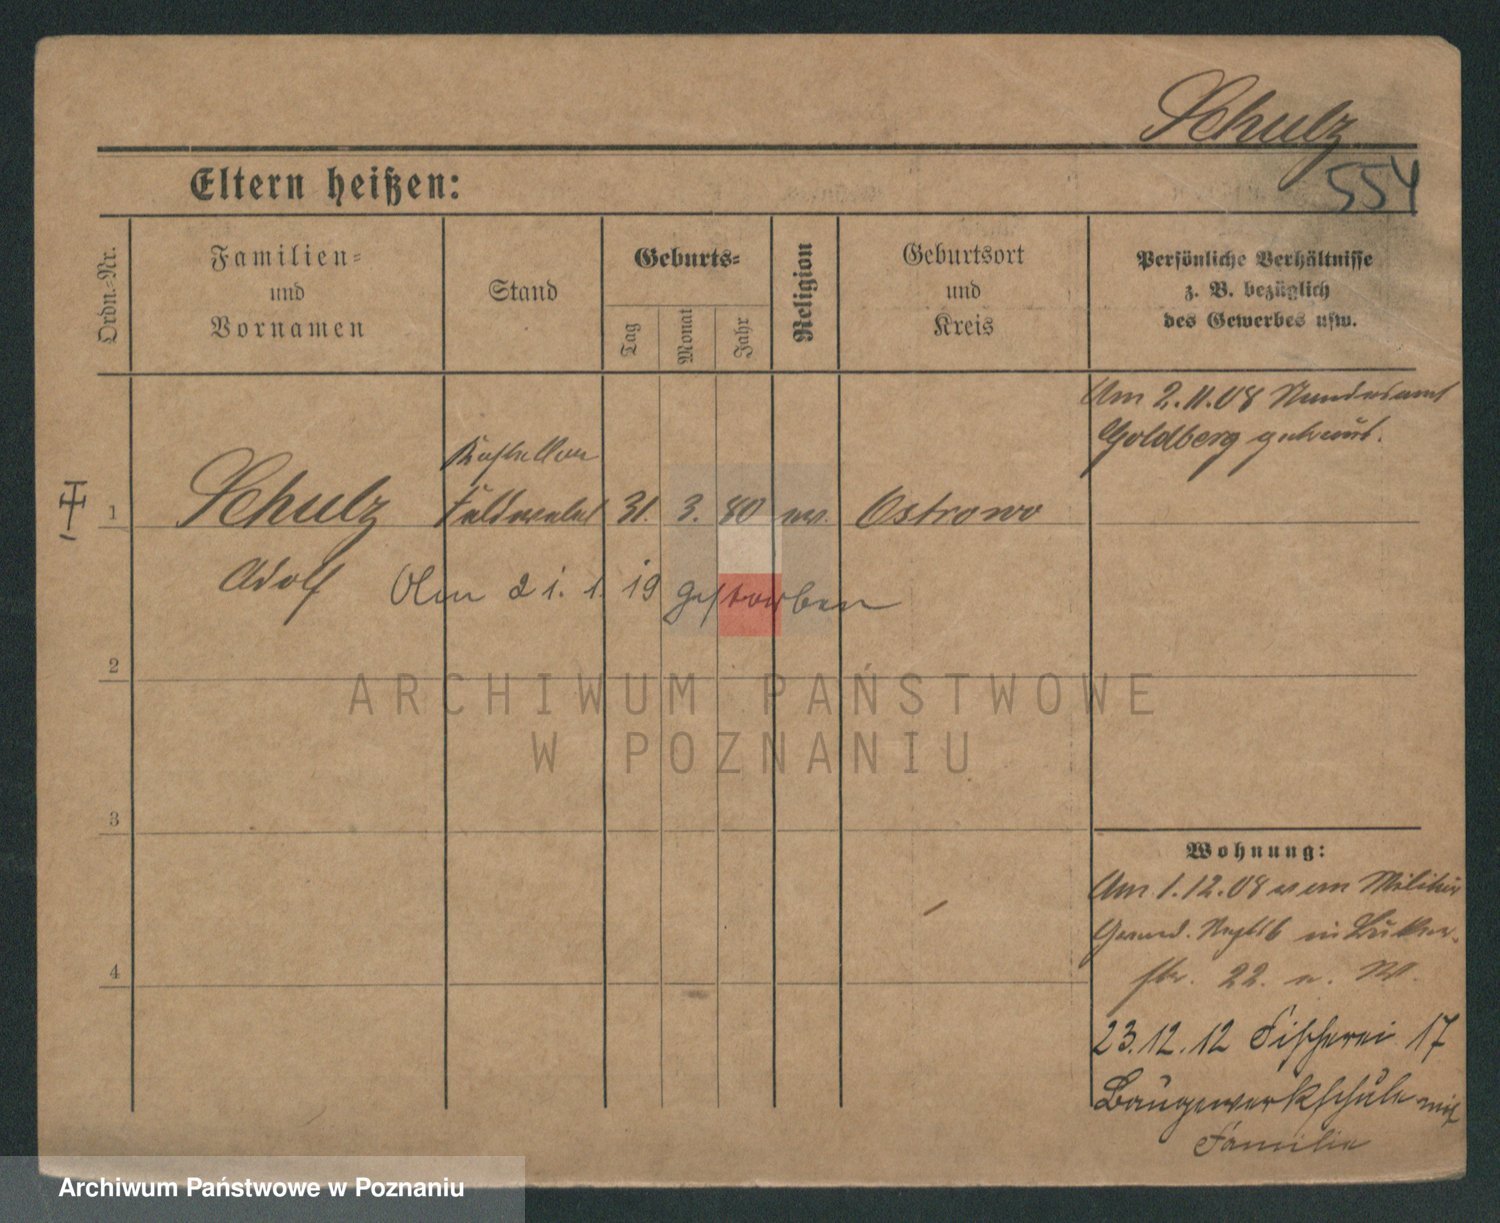 Schulz
554
Eltern heißen:
Ordn.-Nr.
Familien-
und
Vornamen
Stand
Geburts-
Tag
Monat
Jahr
Religion
Geburtsort
und
Kreis
Persönliche Verhältnisse
z. B. bezüglich
des Gewerbes usw.
Am 2.11.08 Standesamt
Goldberg getraut.
Kastellan
1 Schulz Feldwebel 31. 3. 80 ev. Ostrowo
Adolf Am 21. 1. 19 gestorben
2
ARCHIWUM PAŃSTWOWE
W POZNANIU
3
Wohnung:
Am 1.12.08 vom Militär
in
4
str. 22.
23.12.12 Fischerei 17
Baugewerkschule mit
Familie
Archiwum Państwowe w Poznaniu